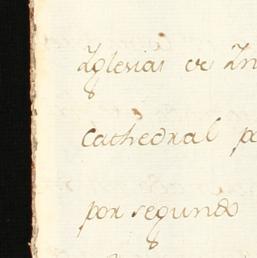 Yglesias de Yn
cathedral po
por segundo